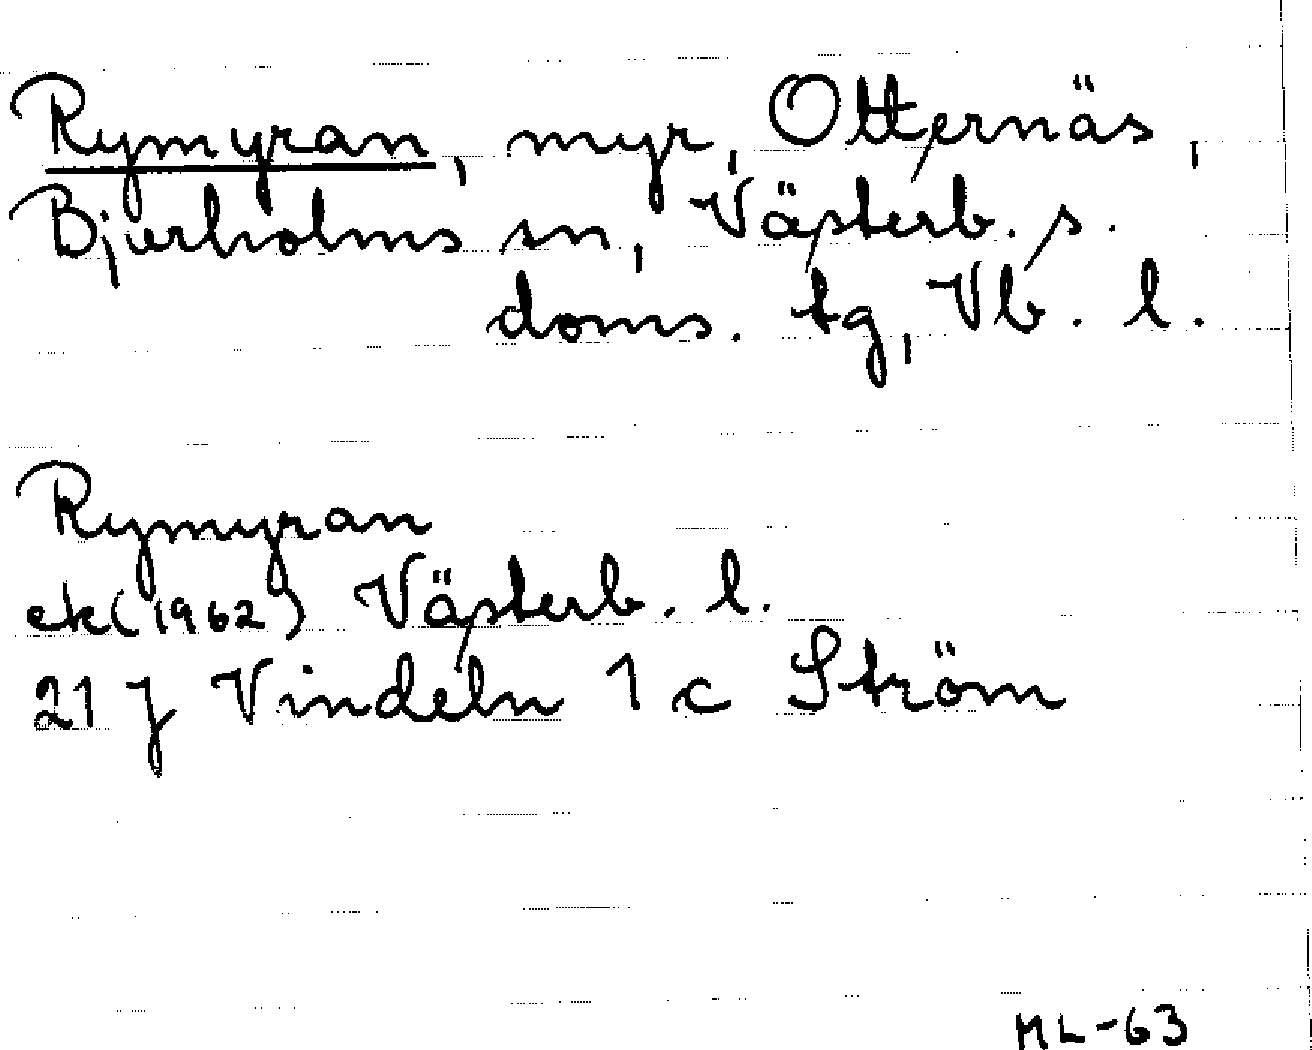 Rymyran, myr, Otternäs,
Bjurholms sn, Västerb. s.
doms. tg, Vb. l.
Rymyran
ek (1962) Västerb. l.
21 J Vindeln 1 c Ström
ML-63